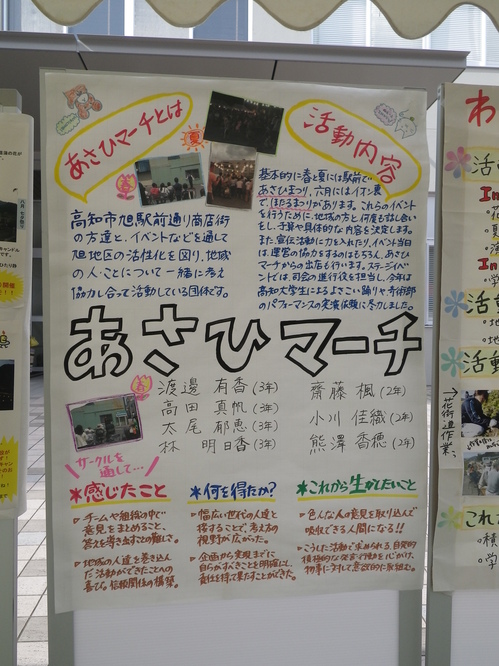 あさひマーチとは
夏
春
活動内容
高知市旭駅前通り商店街
の方達と、イベントなどを通して
旭地区の活性化を図り、地域
の人・ことについて一緒に考え
協力し合って活動している団体です。
基本的に春と夏には駅前で
あさひまつり、六月にはイオン裏
でほたるまつりがあります。これらのイベント
を行うために、地域の方と何度も話し合い
をし、予算や具体的な内容を決定します。
また、宣伝活動に力を入れたり、イベント当日
は、運営の協力をするのはもちろん、あさひ
マーチからの出店も行います。ステージイベ
ントでは、司会の進行役を担当し、今年は
高知大学生によるよさこい踊りや、奇術部
のパフォーマンスの実演依頼に尽力しました。
あさひマーチ
渡邊 有香 (3年)
高田 真帆 (3年)
大尾 郁恵 (3年)
林 明日香 (3年)
齋藤 楓 (2年)
小川 佳織 (2年)
熊澤 香穂 (2年)
サークルを
通して…
*感じたこと
チームや組織の中で
意見をまとめること、
答えを導き出すとの難しさ。
地域の人達を巻き込ん
だ活動ができたことへの
喜び。信頼関係の構築。
*何を得たか?
幅広い世代の人達と
接することで、考え方の
視野が広がった。
企画から実現までに
自らがすべきことを明確にし、
責任を持って果たすことができた。
*これから生かしたいこと
色んな人の意見を取り込んで
吸収できる人間になる!!
こうした活動で求められる、自発的
積極的な発言や行動を心がけ、
物事に対して意欲的に取組む。
わ
活
In
活動
活動
花街道作業
これ